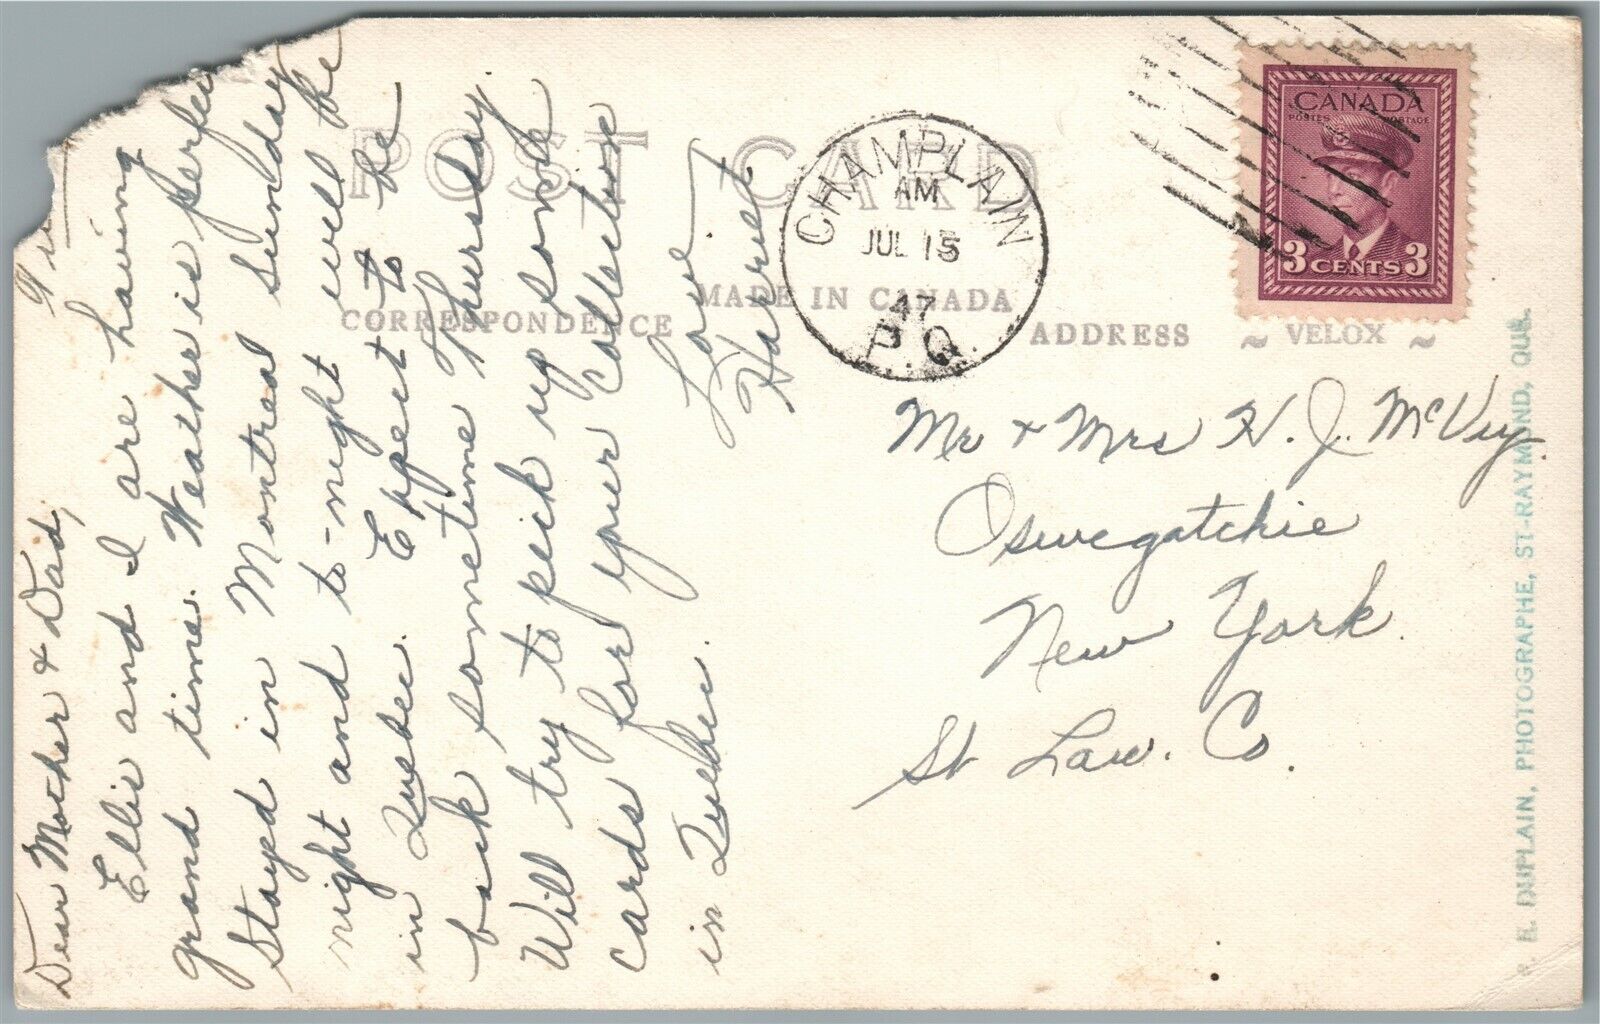 POST CARD
CORRESPONDENCE
MADE IN CANADA
ADDRESS
~ VELOX ~
CHAMPLAIN
AM
JUL 15
47
P.Q.
CANADA
POSTES POSTAGE
3 CENTS 3
Dear Mother & Dad,
Ellis and I are having
grand time. Weather is perfec
Stayed in Montreal Sunday
night and to-night will be
in Quebec. Expect to be
back sometime Thursday.
Will try to pick up some
cards for your collection
in Quebec.
Love
Harriet
Mr & Mrs H. J. McVey.
Oswegatchie
New York.
St Law. Co.
E. DUPLAIN, PHOTOGRAPHE, ST-RAYMOND, QUE.